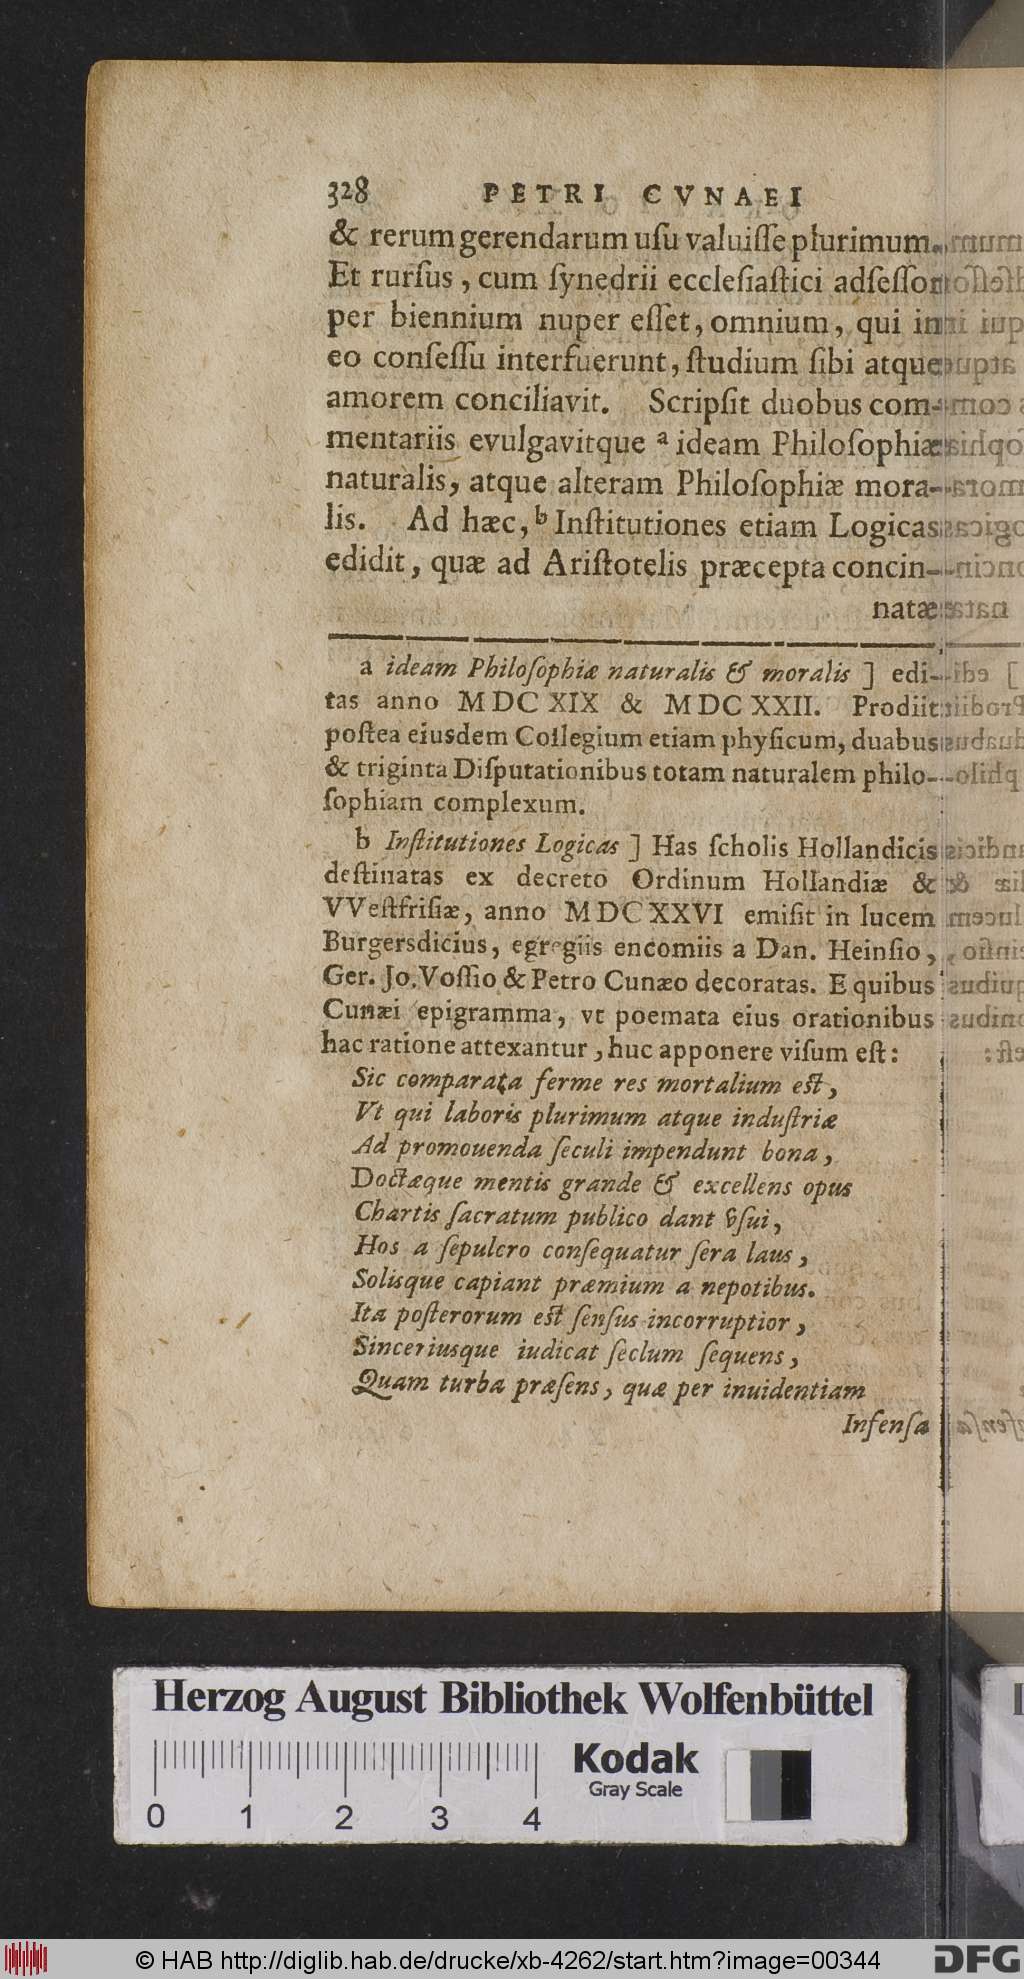 328 PETRI CVNAEI
& rerum gerendarum uſu valuiſſe plurimum.
Et rurſus, cum ſynedrii eccleſiaſtici adſeſſor
per biennium nuper eſſet, omnium, qui in
eo conſeſſu interfuerunt, ſtudium ſibi atque
amorem conciliavit. Scripſit duobus com-
mentariis evulgavitque ᵃ ideam Philoſophiæ
naturalis, atque alteram Philoſophiæ mora-
lis. Ad hæc, ᵇ Inſtitutiones etiam Logicas
edidit, quæ ad Ariſtotelis præcepta concin-
natæ
a ideam Philoſophiæ naturalis & moralis ] edi-
tas anno MDCXIX & MDCXXII. Prodiit
poſtea eiusdem Collegium etiam phyſicum, duabus
& triginta Diſputationibus totam naturalem philo-
ſophiam complexum.
b Inſtitutiones Logicas ] Has ſcholis Hollandicis
deſtinatas ex decreto Ordinum Hollandiæ &
VVeſtfriſiæ, anno MDCXXVI emiſit in lucem
Burgersdicius, egregiis encomiis a Dan. Heinſio,
Ger. Jo. Voſſio & Petro Cunæo decoratas. E quibus
Cunæi epigramma, vt poemata eius orationibus
hac ratione attexantur, huc apponere viſum eſt:
Sic comparata ferme res mortalium eſt,
Vt qui laboris plurimum atque induſtriæ
Ad promouenda ſeculi impendunt bona,
Doctæque mentis grande & excellens opus
Chartis ſacratum publico dant vſui,
Hos a ſepulcro conſequatur ſera laus,
Solisque capiant præmium a nepotibus.
Ita poſterorum eſt ſenſus incorruptior,
Sinceriusque iudicat ſeclum ſequens,
Quam turba præſens, quæ per inuidentiam
Infenſa
Herzog August Bibliothek Wolfenbüttel
Kodak
Gray Scale
0 1 2 3 4
© HAB http://diglib.hab.de/drucke/xb-4262/start.htm?image=00344
DFG